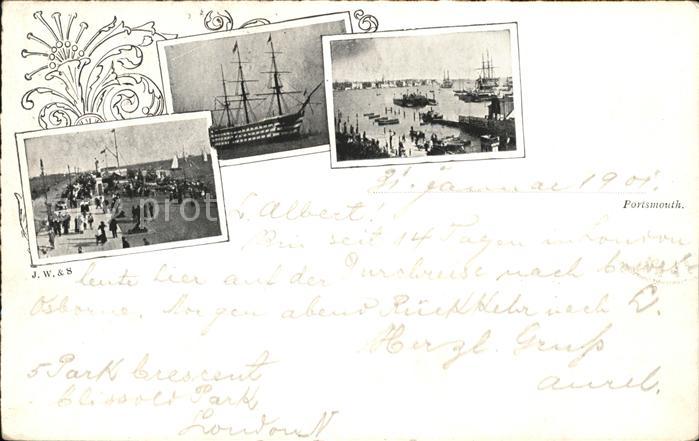 31. Januar 1901.
Portsmouth.
L. Albert.
Bin seit 14 Tagen in London
J. W. & S
heute hier auf der Durchreise nach
Osborne. Morgen abend Rückkehr nach L.
Herzl. Gruß
Aurel.
5 Park Crescent
Clissold Park
London N